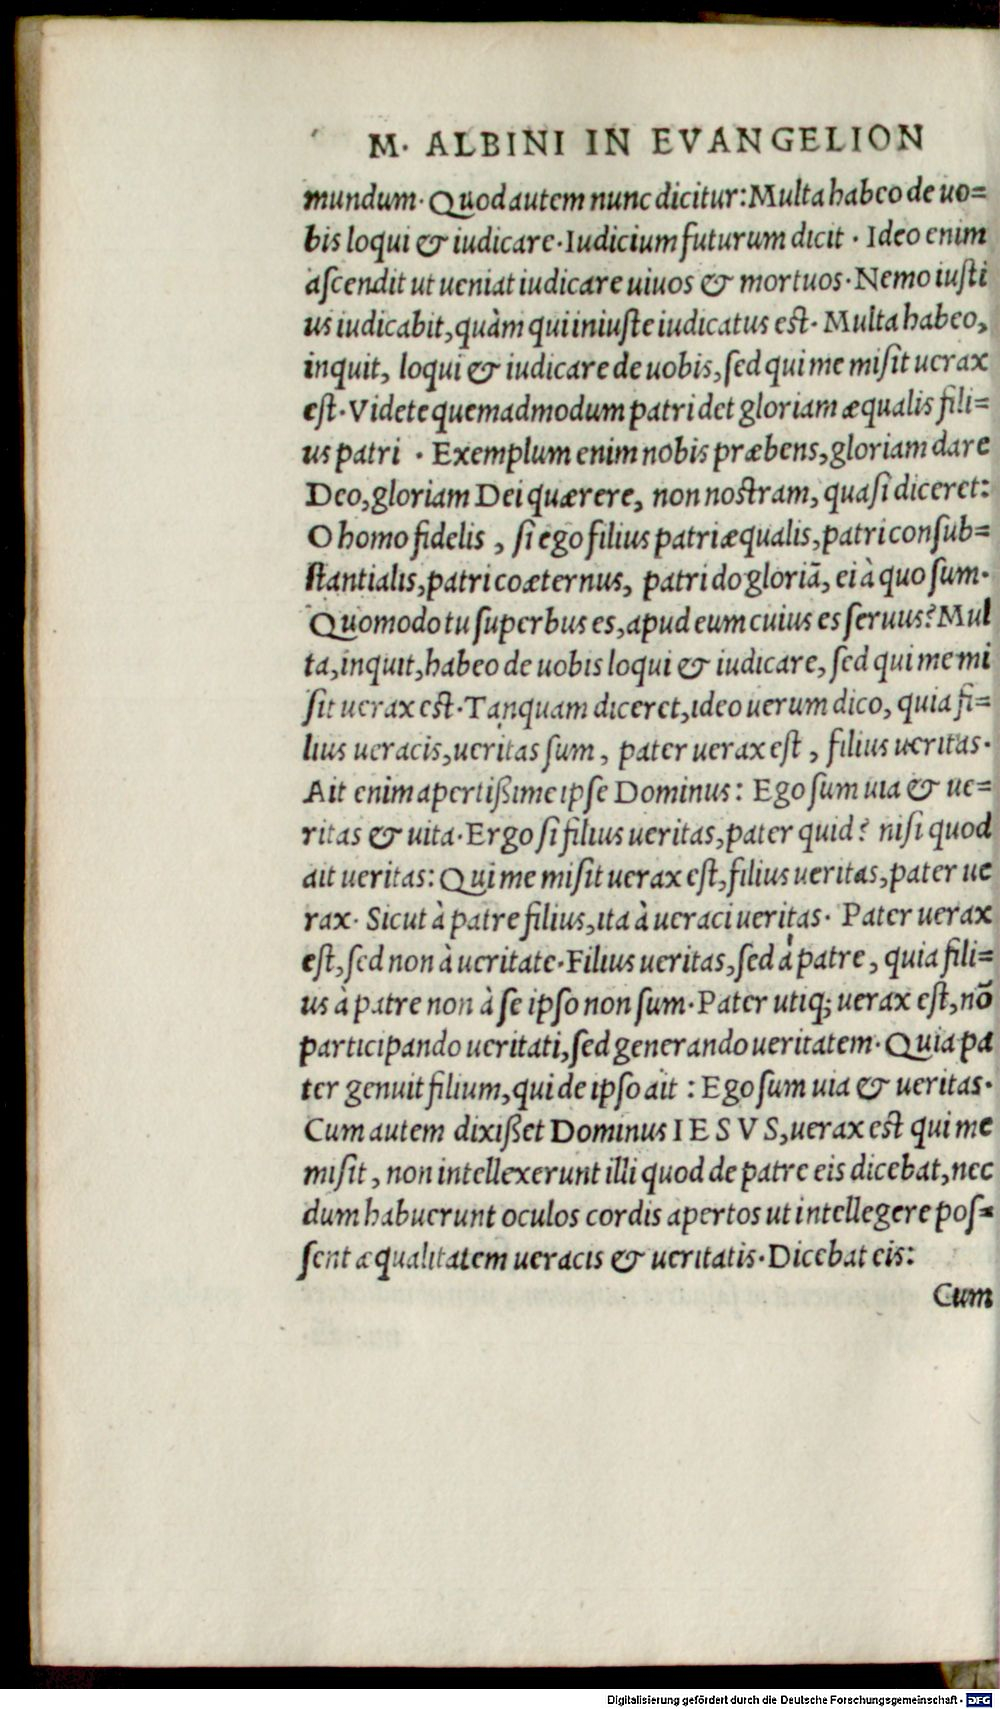 M. ALBINI IN EVANGELION
mundum. Quod autem nunc dicitur: Multa habeo de uo=
bis loqui & iudicare. Iudicium futurum dicit. Ideo enim
ascendit ut ueniat iudicare uiuos & mortuos. Nemo iusti
us iudicabit, quàm qui iniuste iudicatus est. Multa habeo,
inquit, loqui & iudicare de uobis, sed qui me misit uerax
est. Videte quemadmodum patri det gloriam æqualis fili=
us patri. Exemplum enim nobis præbens, gloriam dare
Deo, gloriam Dei quærere, non nostram, quasi diceret:
O homo fidelis, si ego filius patri æqualis, patri consub=
stantialis, patri coæternus, patri do gloriã, ei à quo sum.
Quomodo tu superbus es, apud eum cuius es seruus? Mul
ta, inquit, habeo de uobis loqui & iudicare, sed qui me mi
sit uerax est. Tanquam diceret, ideo uerum dico, quia fi=
lius ueracis, ueritas sum, pater uerax est, filius ueritas.
Ait enim apertißime ipse Dominus: Ego sum uia & ue=
ritas & uita. Ergo si filius ueritas, pater quid? nisi quod
ait ueritas: Qui me misit uerax est, filius ueritas, pater ue
rax. Sicut à patre filius, ita à ueraci ueritas. Pater uerax
est, sed non à ueritate. Filius ueritas, sed à patre, quia fili=
us à patre non à se ipso non sum. Pater utiq; uerax est, nõ
participando ueritati, sed generando ueritatem. Quia pa
ter genuit filium, qui de ipso ait: Ego sum uia & ueritas.
Cum autem dixißet Dominus IESVS, uerax est qui me
misit, non intellexerunt illi quod de patre eis dicebat, nec
dum habuerunt oculos cordis apertos ut intellegere pos=
sent æqualitatem ueracis & ueritatis. Dicebat eis:
Cum
Digitalisierung gefördert durch die Deutsche Forschungsgemeinschaft - DFG